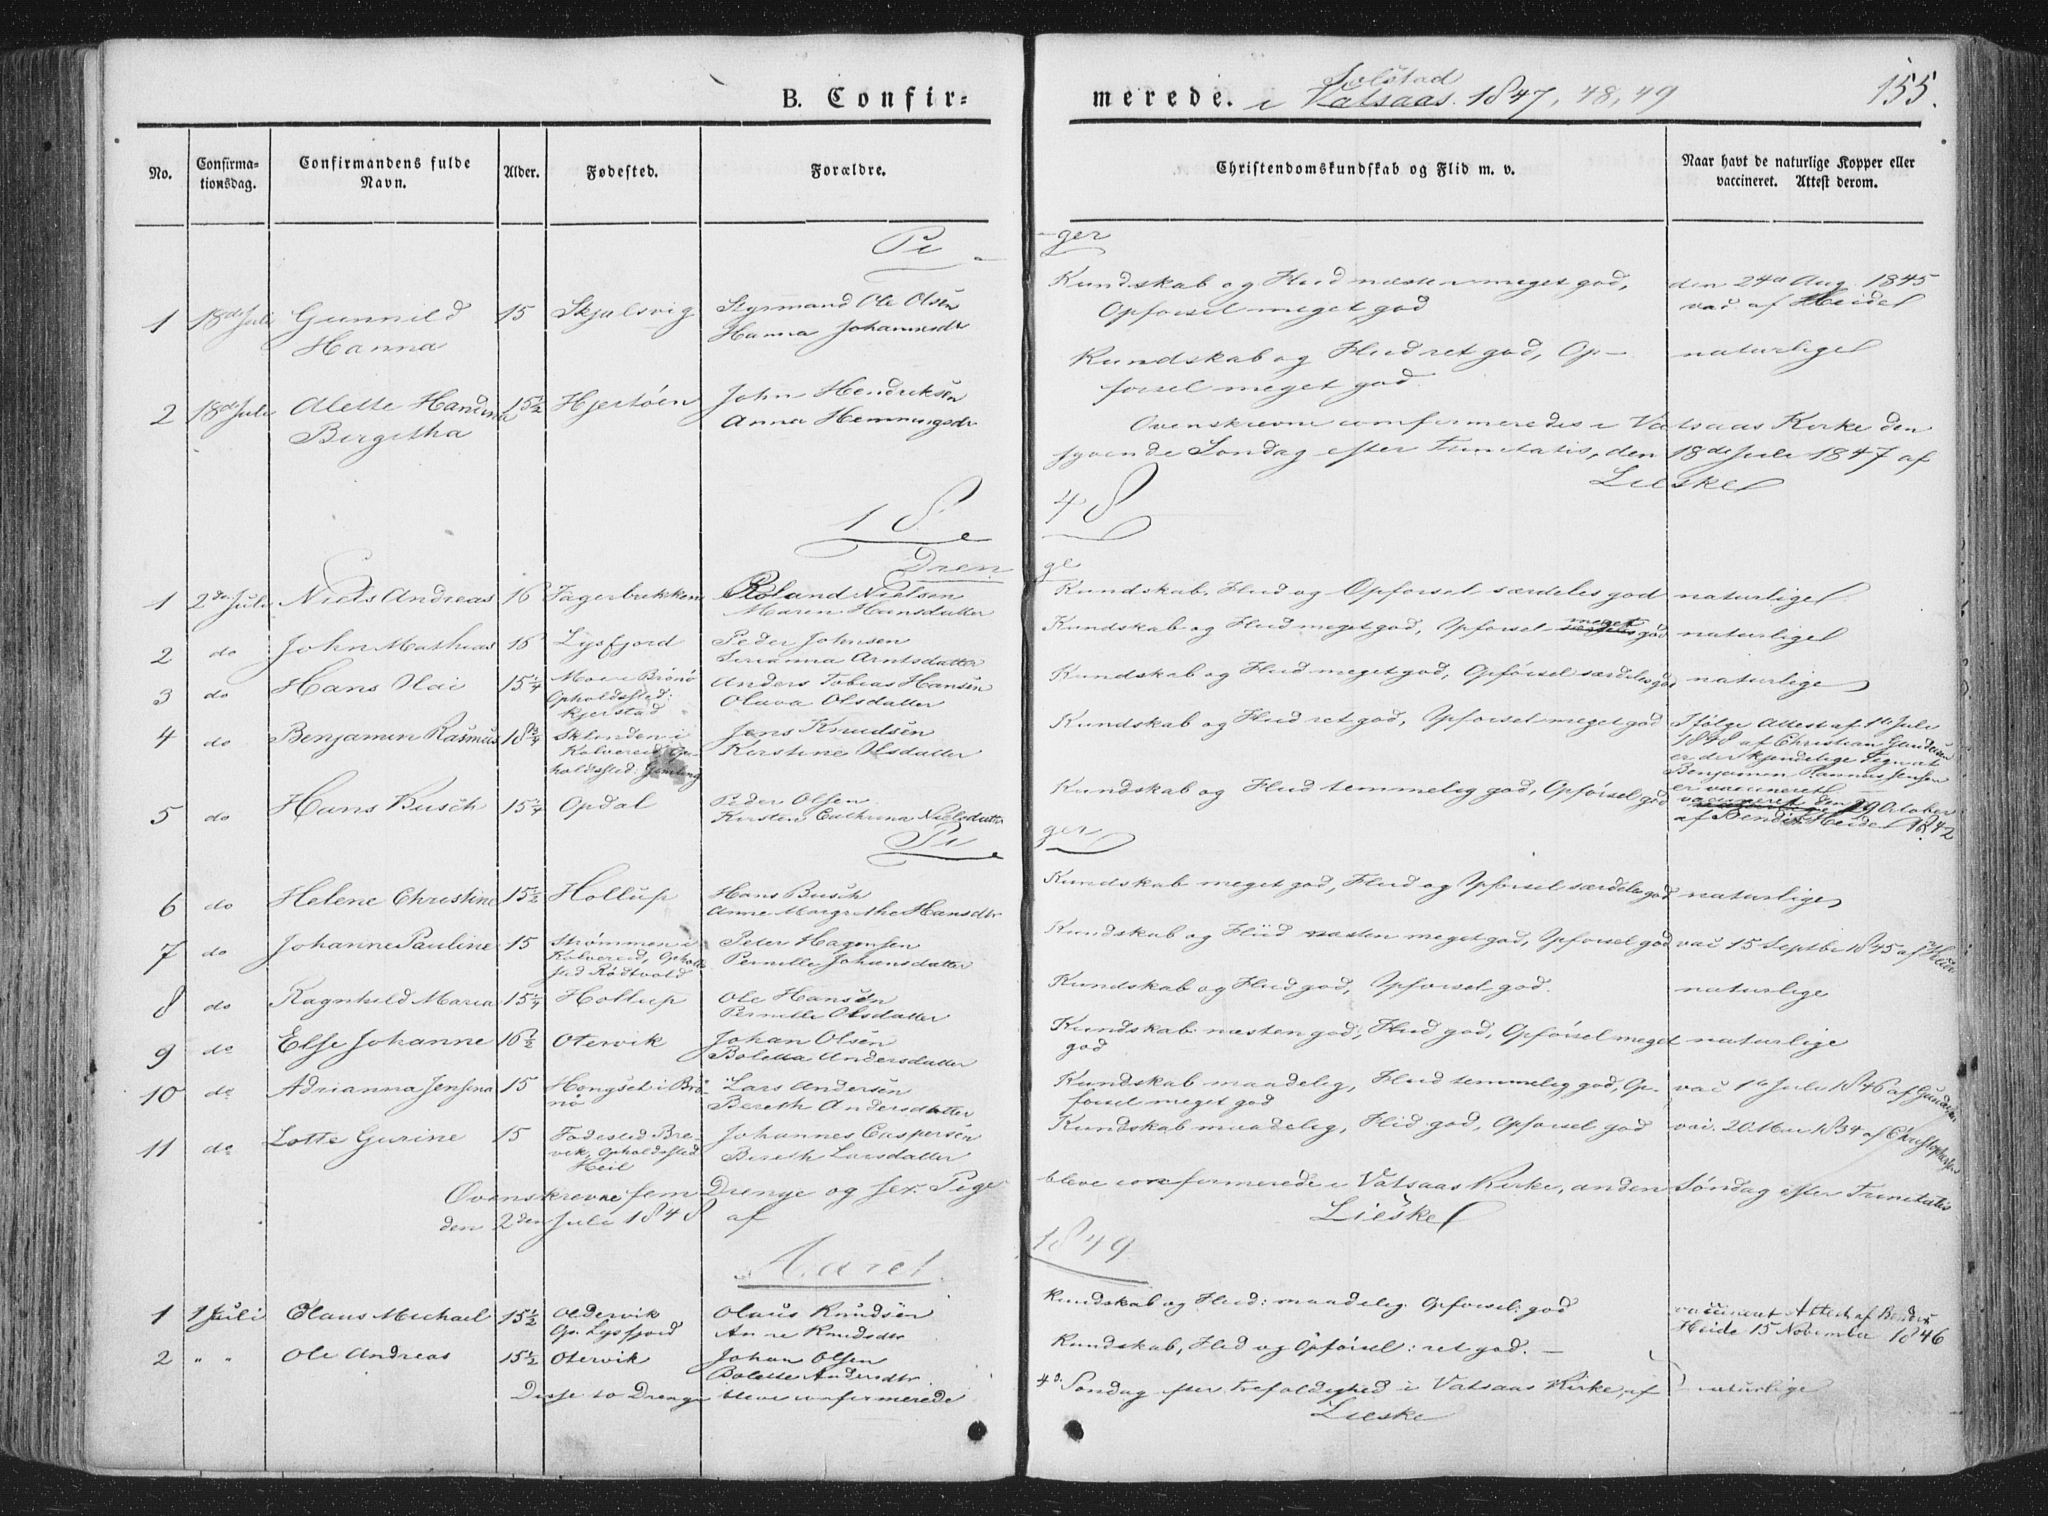 B. Confir=
merede. i Solstad
Vatsaas. 1847, 48, 49
155.
No.
Confirma-
tionsdag.
Confirmandens fulde
Navn.
Alder.
Fødested.
Forældre.
Christendomskundskab og Flid m. v.
Naar havt de naturlige Kopper eller
vaccineret. Attest derom.
Pi - ger
1 18de Juli Gunnild
Hanna
15 Skjalsvig Styrmand Ole Olsen
Hanna Johannesdr
Kundskab og Flid næsten meget god,
Opførsel meget god
den 24de Aug. 1845
vac. af Heidel
2 18de Juli Alette Handina
Birgitha
15½ Hjertøen John Hendriksen
Anna Hemmingsdr
Kundskab og Flid ret god, Op-
førsel meget god.
naturlige
Ovenskrevne confirmeredes i Vatsaas Kirke den
syvende Søndag efter Trinitatis, den 18de Juli 1847 af
Lieske
18 48
Dren ge
1 2den Juli Niels Andreas 16 Fagerbakken Roland Nielsen
Maren Hansdatter
Kundskab, Flid og Opførsel særdeles god naturlige
2 do John Mathias 16 Lysfjord Peder Johnsen
Serianna Arntsdatter
Kundskab og Flid meget god, Opførsel meget god naturlige
3 do Hans Nai 15¼ Moe i Brønø
Opholdssted:
Kjerstad
Anders Tobias Hansen
Olava Olsdatter
Kundskab og Flid meget god, Opførsel særdeles god naturlige
4 do Benjamin Rasmus 18¾ i
Kolvereid, Op-
holdssted:
Jens Knudsen
Kirstine Olsdatter
Kundskab og Flid ret god, Opførsel meget god
Ifølge Attest af 1te Juli
1848 af Christian Gundersen
er der kjendelige Tegn at
Benjamin Rasmus Jensen
er vaccineret
5 do Hans Busch 15¼ Opdal Peder Olsen
Kirsten Cathrina Nielsdatter
Kundskab og Flid temmelig god, Opførsel god
vaccineret den 29 October
af Bendix Heidel 1842
Pi ger
6 do Helene Christine 15½ Hollup Hans Busch
Anne Margrethe Hansdtr
Kundskab meget god, Flid og Opførsel særdeles god naturlige
7 do Johanne Pauline 15 Strømmen i
Kolvereid, Opholds
sted Rødtvold
Peter Hagensen
Pernille Johansdatter
Kundskab og Flid næsten meget god, Opførsel god vac 15 Septbr 1845 af Heidel
8 do Ragnhild Maria 15¼ Hollup Ole Hansen
Pernille Olsdatter
Kundskab og Flid god, Opførsel god. naturlige
9 do Else Johanne 16½ Otervik Johan Olsen
Boletta Andersdatter
Kundskab næsten god, Flid god, Opførsel meget
god
naturlige
10 do Adrianna Jensina 15 Hongset i Brø-
nø
Lars Andersen
Bereth Andersdatter
Kundskab maadelig, Flid temmelig god, Op-
førsel meget god
vac 1te Juli 1846 af Gundersen
11 do Lotte Gurine 15 Fødested Bre-
vik, Opholdssted
Heil
Johannes Caspersen
Bereth Larsdatter
Kundskab maadelig, Flid god, Opførsel god vac. 20 Mai 1834 af Christophersen
Ovenskrevne fem Drenge og sex Pige bleve confirmerede i Vatsaas Kirke, anden Søndag efter Trinitatis
den 2den Juli 1848 af Lieske
Aaret 1849
1 1 Juli Olaus Michael 15½ Oldervik
Op. Lysfjord
Olaus Knudsen
Anne Knudsdtr
Kundskab og Flid: maadelig. Opførsel: god
vaccineret Attest af Bendix
Heide 15 November 1846
2 " " Ole Andreas 15½ Otervik Johan Olsen
Bolette Andersdtr.
Kundskab, Flid og Opførsel: ret god. —
naturlige
Disse to Drenge bleve confirmerede 4d. Søndag efter Trefoldighed i Vatsaas Kirke, af
Lieske